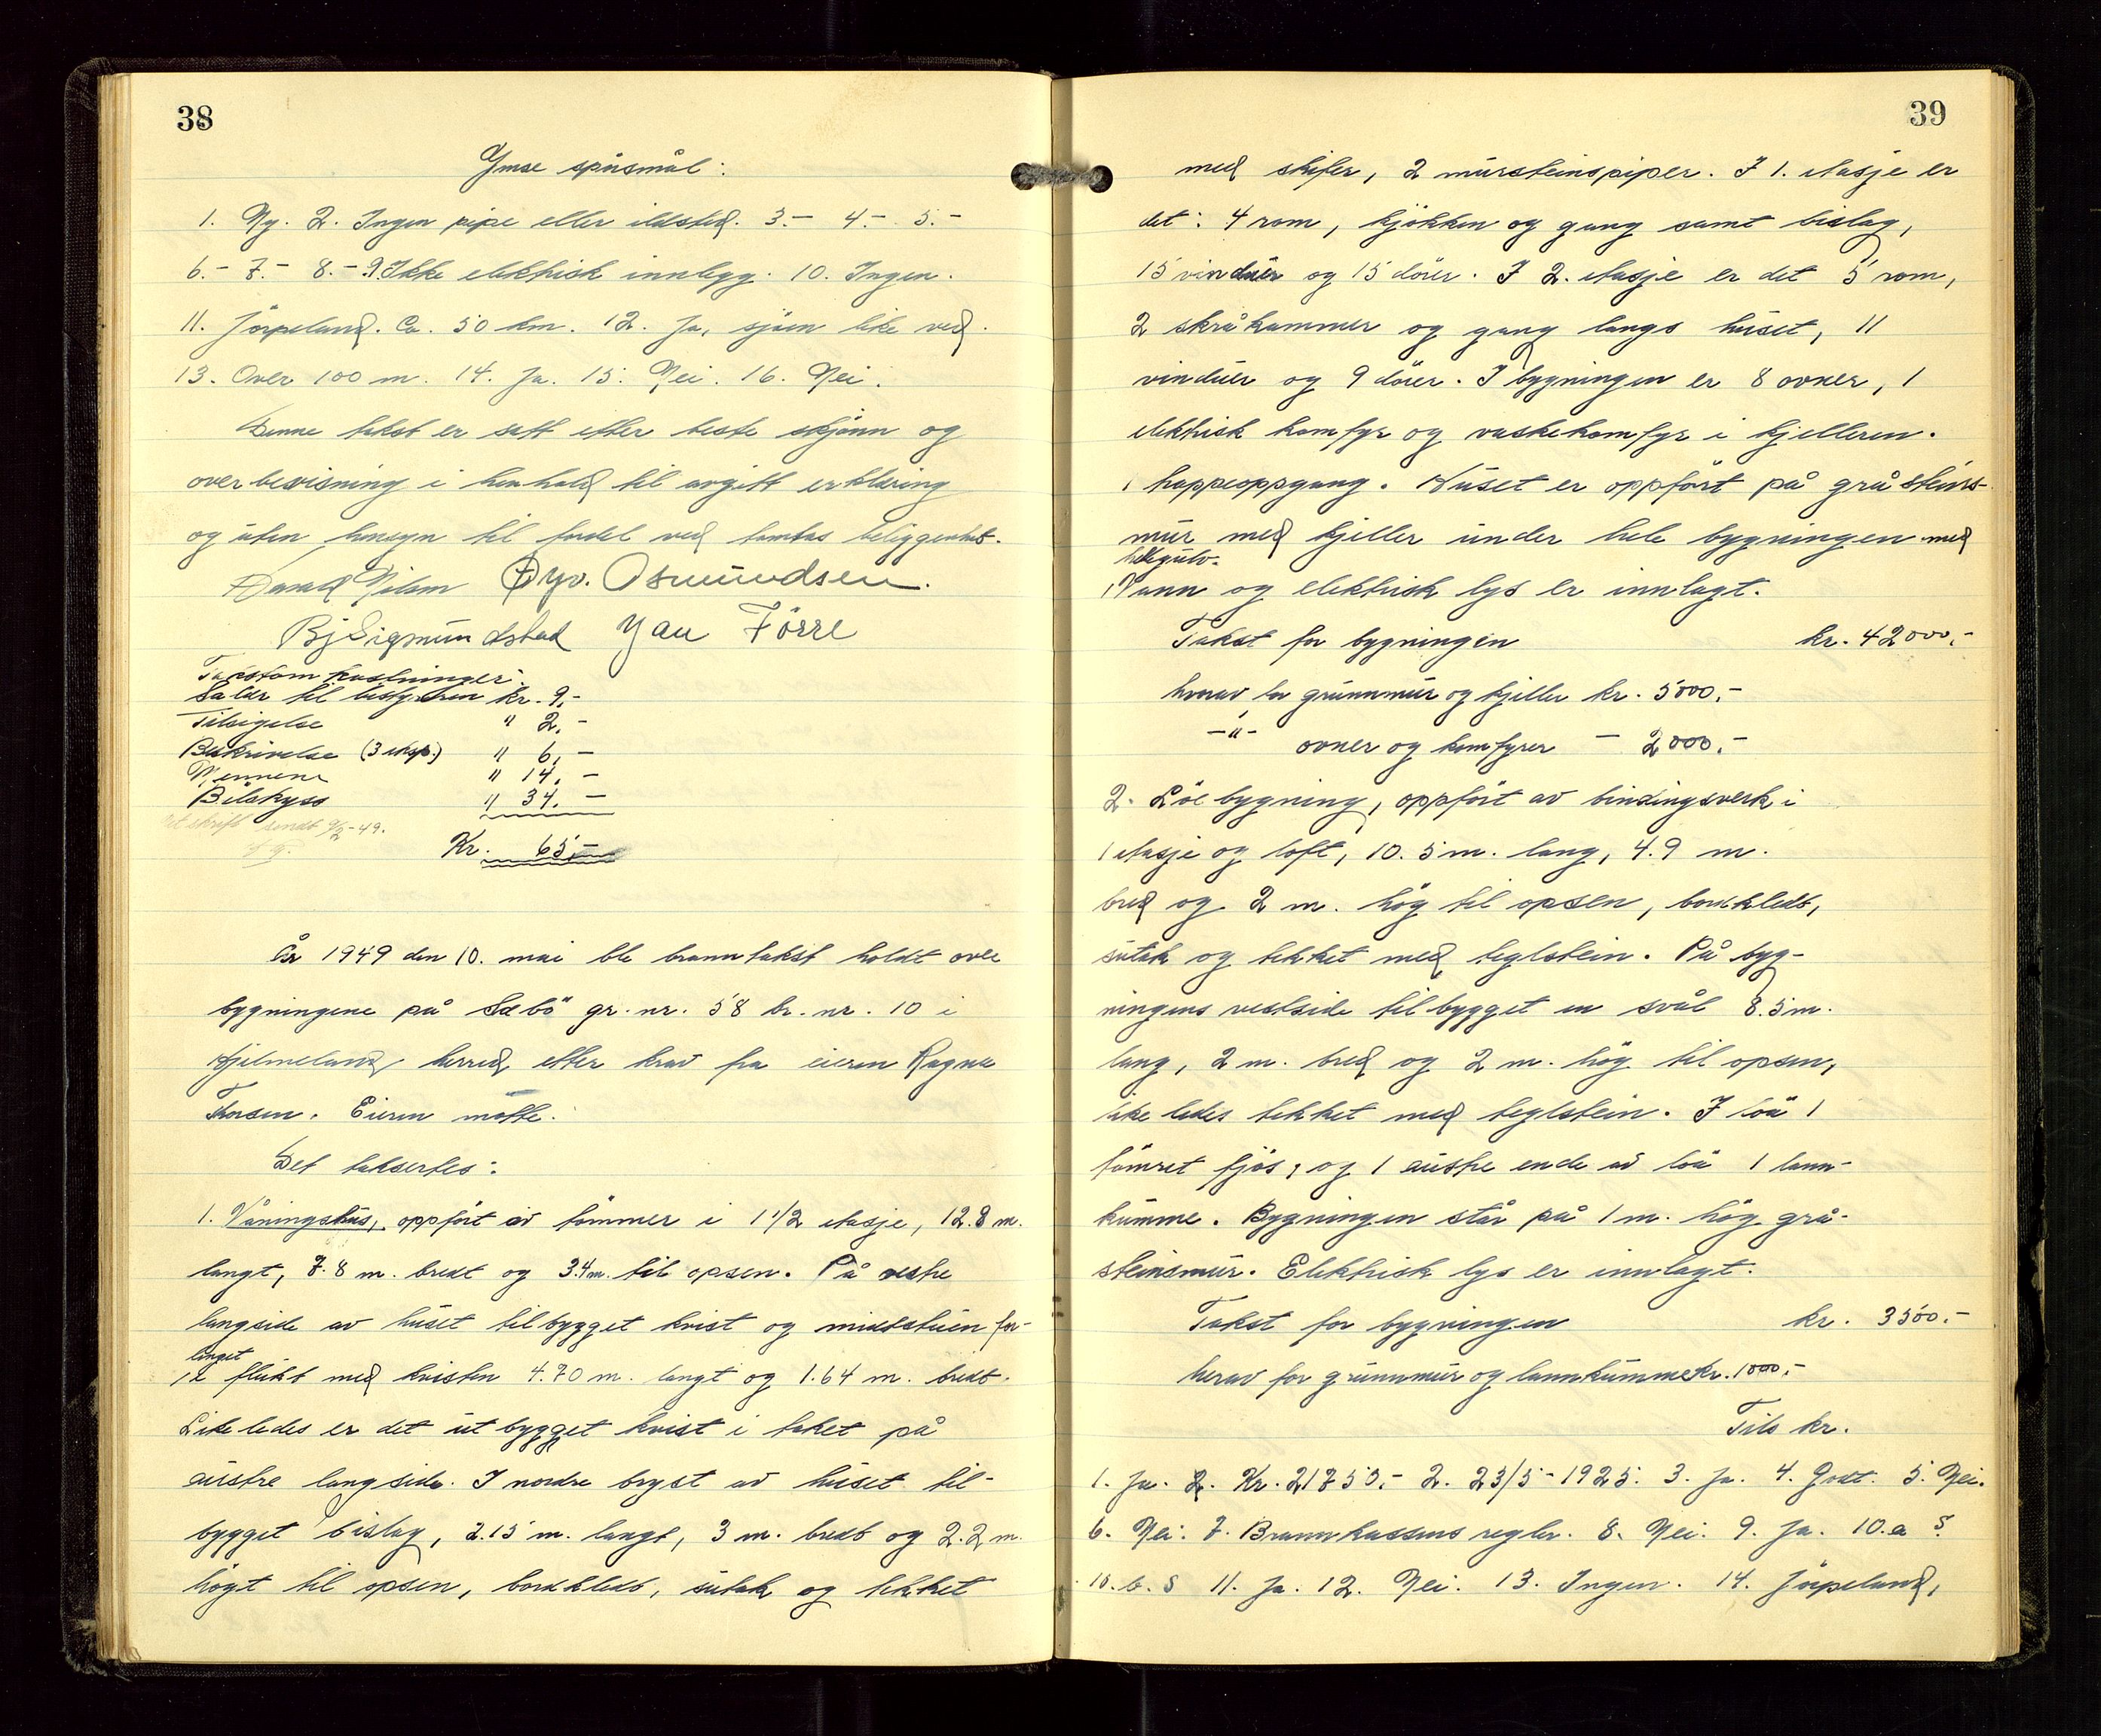 38
Ymse spörsmål:
1. Ny. 2. Ingen pipe eller ildsted. 3.– 4.– 5.–
6.– 7.– 8.– 9. Ikke elektrisk innlegg. 10. Ingen.
11. Jörpeland. Ca. 50 km. 12. Ja, sjöen like ved.
13. Over 100 m. 14. Ja. 15. Nei. 16. Nei.
Denne takst er satt etter beste skjönn og
overbevisning i henhold til avgitt erklæring
og uten hensyn til fordel ved tomtas beliggenhet.
Nilsen Öyv. Osmundsen.
Bj Sigmundstad Jan Förre
Takstomkostninger:
Salær til bestyreren kr. 9,-
Tilsigelse " 2,-
Beskrivelse (3 eksp.) " 6,-
Mennene " 14,-
Bilskyss " 34,-
skrift sendt 9/5-49.
Kr. 65,-
År 1949 den 10. mai ble branntakst holdt over
bygningene på "Sæbö" gr. nr. 58 br. nr. 10 i
Hjelmeland herred etter krav fra eieren Ragna
Thorsen. Eieren møtte.
Det taksertes:
1. Våningshus, oppfört av tömmer i 1 1/2 etasje, 12.8 m.
langt, 7.8 m. bredt og 3.4 m. til opsen. På vestre
langside av huset tilbygget kvist og midtstuen for-
lenget
i flukt med kvisten 4.70 m. langt og 1.64 m. bredt.
Likeledes er det utbygget kvist i taket på
austre langside. I nordre bryst av huset til-
bygget bislag, 2.15 m. langt, 3 m. bredt og 2.2 m.
högt til opsen, bordkledt, sutak og tekket
39
med skifer, 2 mursteinspiper. I 1. etasje er
det: 4 rom, kjökken og gang samt bislag,
15 vinduer og 15 dörer. I 2. etasje er det 5 rom,
2 skråkammer og gang langs huset, 11
vinduer og 9 dörer. I bygningen er 8 ovner, 1
elektrisk komfyr og vaskekomfyr i kjelleren.
1 trappeoppgang. Huset er oppfört på gråsteins-
mur med kjeller under hele bygningen med
hellegulv.
Vann og elektrisk lys er innlagt.
Takst for bygningen kr. 42000.-
hvorav for grunnmur og kjeller kr. 5000.-
-"- ovner og komfyrer – 2000.-
2. Löebygning, oppfört av bindingsverk i
1 etasje og loft, 10.5 m. lang, 4.9 m.
bred og 2 m. hög til opsen, bordkledt,
sutak og tekket med teglstein. På byg-
ningens vestside tilbygget en sval 8.5 m.
lang, 2 m. bred og 2 m. hög til opsen,
likeledes tekket med teglstein. I löa 1
tömret fjös, og i austre ende av löa 1 lann-
kumme. Bygningen står på 1 m. hög grå-
steinsmur. Elektrisk lys er innlagt.
Takst for bygningen kr. 3500.-
herav for grunnmur og lannkumme kr. 1000.-
Tils kr.
1. Ja. Kr. 21750.- 2. 23/5-1925. 3. Ja. 4. Godt. 5. Nei.
6. Nei. 7. Brannkassens regler. 8. Nei. 9. Ja. 10.a S.
10.b. S 11. Ja. 12. Nei. 13. Ingen. 14. Jörpeland,